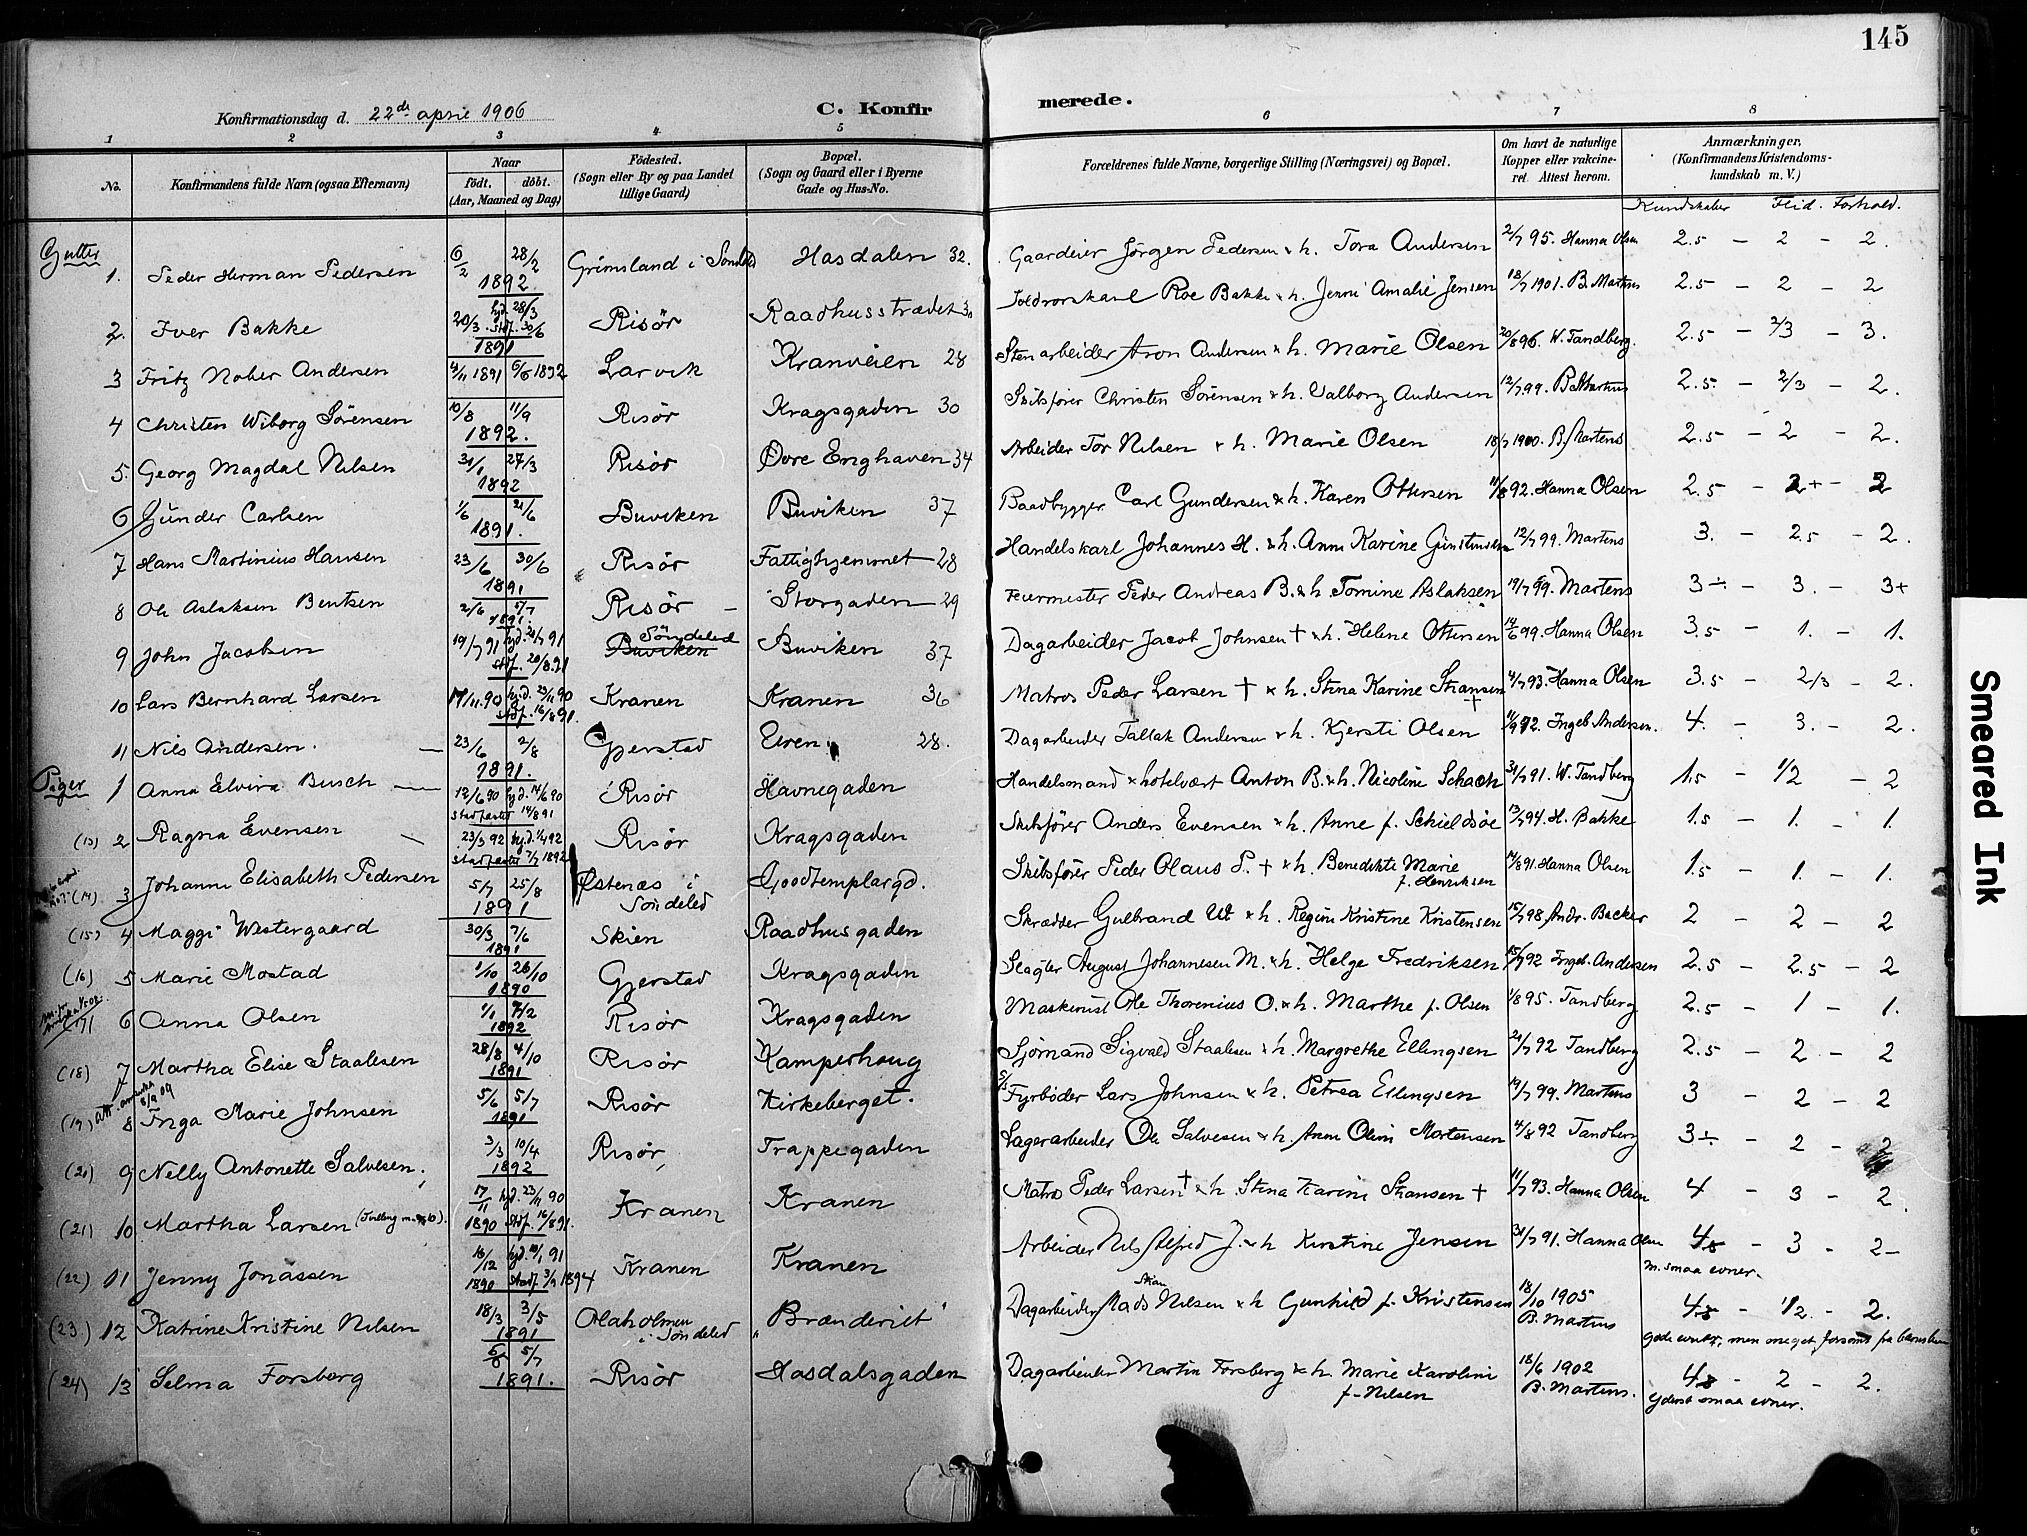 145
Konfirmationsdag d. 22de april 1906
C. Konfir merede.
1 2 3 4 5 6 7 8
No.
Konfirmandens fulde Navn (ogsaa Efternavn)
Naar
født. døbt.
(Aar, Maaned og Dag)
Fødested.
(Sogn eller By og paa Landet
tillige Gaard)
Bopæl.
(Sogn og Gaard eller i Byerne
Gade og Hus-No.
Forældrenes fulde Navne, borgerlige Stilling (Næringsvei) og Bopæl.
Om havt de naturlige
Kopper eller vaccine-
ret. Attest herom.
Anmærkninger.
(Konfirmandens Kristendoms-
kundskab m. V.)
Kundskaber Flid. Forhold.
Gutter
1. Peder Herman Pedersen 6/2 28/2 1892 Grimsland i Hasdalen 32. Gaardeier Jörgen Pedersen & h. Tora Andersen 2/7 95. Hanna Olsen 2.5 – 2 – 2.
2. Iver Bakke 20/3 hjd. 28/3 stdf. 30/6 1891 Risør Raadhusstrædet 30 Roe Bakke & h. Jenni Amalie Jensen 18/7 1901. B. Martens 2.5 – 2 – 2
3 Fritz Nober Andersen 4/11 1891 6/6 1892 Larvik Kranveien 28 Stenarbeider Aron Andersen & h. Marie Olsen 20/8 96. W. Tandberg. 2.5 – 2/3 – 3.
4 Christen Wiborg Sörensen 10/8 11/9 1892. Risør Kragsgaden 30 Skibsfører Christen Sörensen & h. Valborg Andersen 12/7 99. B. Martens 2.5 – 2/3 – 2.
5. Georg Magdal Nilsen 31/1 27/3 1892 Risør Øvre Enghaven 34 Arbeider Tor Nilsen & h. Marie Olsen 18/7 1900. B. Martens 2.5 – 2 – 2.
6 Gunder Carlsen 1/6 21/6 1891. Buviken Buviken 37 Baadbygger Carl Gundersen & h. Karen Ottersen 11/8 92. Hanna Olsen 2.5 – 2+ – 2
7 Hans Martinius Hansen 23/6 30/6 1891 Risør Fattighjemmet 28 Handelskarl Johannes H. & h. Anne Karine 12/7 99. Martens 3. – 2.5 – 2.
8 Ole Aslaksen Bentsen 2/6 5/7 1891. Risør – Storgaden 29 Feiermester Peder Andreas B. & h. Tomine Aslaksen 19/7 99. Martens 3÷ – 3. – 3+
9 John Jacobsen 19/7 91 hjd. 26/7 91 stdf. 20/8 91 Söndeled Buviken Buviken 37 Dagarbeider Jacob Johnsen † & h. Helene Ottersen 14/6 99. Hanna Olsen 3.5 – 1. – 1.
10 Lars Bernhard Larsen 17/11 90 hjd. 23/11 90 stdf. 16/8 91. Kranen Kranen 36 Matros Peder Larsen † & h. Stina Karine Stiansen † 11/7 93. Hanna Olsen 3.5 – 2/3 – 2.
11 Nils Andersen. 23/6 2/8 1891. Gjerstad 28. Dagarbeider Tallak Andersen & h. Kjersti Olsen 11/9 92. Ingeb. Andersen. 4. – 3. – 2.
Piger
1 Anna Elvira Busch 12/6 90 hjd. 14/6 90 stadfæstet 14/8 91 Risør Havnegaden Handelsmand & hotelvært Anton B. & h. Nicoline Schach 31/7 91. W. Tandberg 1.5 – 1/2 – 2
(13) 2 Ragna Evensen 23/3 92 hjd. 1/4 92 stadfæstet 7/7 1892 Risør Kragsgaden Skibsfører Anders Evensen & h. Anne f. Schieldsøe 13/7 94. H. Bakke 1.5 – 1. – 1.
(14) 3 Johanne Elisabeth Pedersen 5/7 25/8 1891 Østenæs i Söndeled Goodtemplargd. Skibsfører Peder Olaus P. † & h. Benedikte Marie f. Henriksen 17/8 91. Hanna Olsen 1.5 – 1. – 1.
(15) 4 Maggi Westergaard 30/3 7/6 1891 Skien Raadhusgaden Skrædder Gulbrand W. & h. Regine Kristine Kristensen 15/7 98. Andr. Backer 2 – 2 – 2
(16) 5 Marie Mostad 1/10 26/10 1890 Gjerstad Kragsgaden Slagter August Johannesen M. & h. Helge Fredriksen 15/7 92 Ingeb. Andersen 2.5 – 2.5 – 2
(17) 6 Anna Olsen 1/1 1892 Risør Kragsgaden Maskinist Ole Thorenius O. & h. Marthe f. Olsen 1/8 95. Tandberg 2.5 – 1 – 1.
(18) 7 Martha Elise Staalesen 28/8 4/10 1891 Risør Kamperhoug Sjømand Sigvald Staalesen & h. Margrethe Ellingsen 21/7 92 Tandberg 2.5 – 2 – 2
(19) 8 Inga Marie Johnsen 5/6 5/7 1891 Risør Kirkeberget. Fyrbøder Lars Johnsen & h. Petrea Ellingsen 19/7 99. Martens 3 – 2 – 2
(20) 9 Nelly Antonette Salvesen. 3/3 10/4 1892 Risør Trappegaden Lagerarbeider Ole Salvesen & h. Anne Oline Mortensen 4/8 92 Tandberg 3÷ – 2 – 2
(21) 10 Martha Larsen (Tvilling m. № 10). 17/11 hjd. 23/11 90 1890 stdf. 16/8 91. Kranen Kranen Matros Peder Larsen † & h. Stina Karine Stiansen † 11/7 93. Hanna Olsen 4 – 3 – 2.
(22) 11 Jenny Jonassen 16/12 1890 stadf. 3/9 1894 Kranen Kranen Arbeider Nils Alfred J. & h. Kirstine Jensen 31/7 91. Hanna Olsen – 3 – 2 –
m. smaa evner.
(23.) 12 Katrine Kristine Nilsen 18/3 3/5 1891 Olaholmen i Söndeled Brænderiet Dagarbeider Mads Nilsen & h. Gunhild f. Kristensen 18/10 1905 B. Martens – 1/2 – 2.
gode evner, men meget forsømt fra barnsben
(24) 13 Selma Forsberg 5/7 1891. Risør Hasdalsgaden Dagarbeider Martin Forsberg & h. Marie Karoline f. Nilsen 18/6 1902 B. Martens. – 2 – 2.
yderst smaa evner.
Smeared Ink